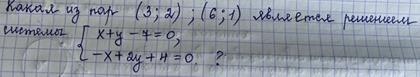 Какая из пар (3;2) ; (6;1) является решением
системы { x+y-7=0,
{ -x+2y+4=0. ?